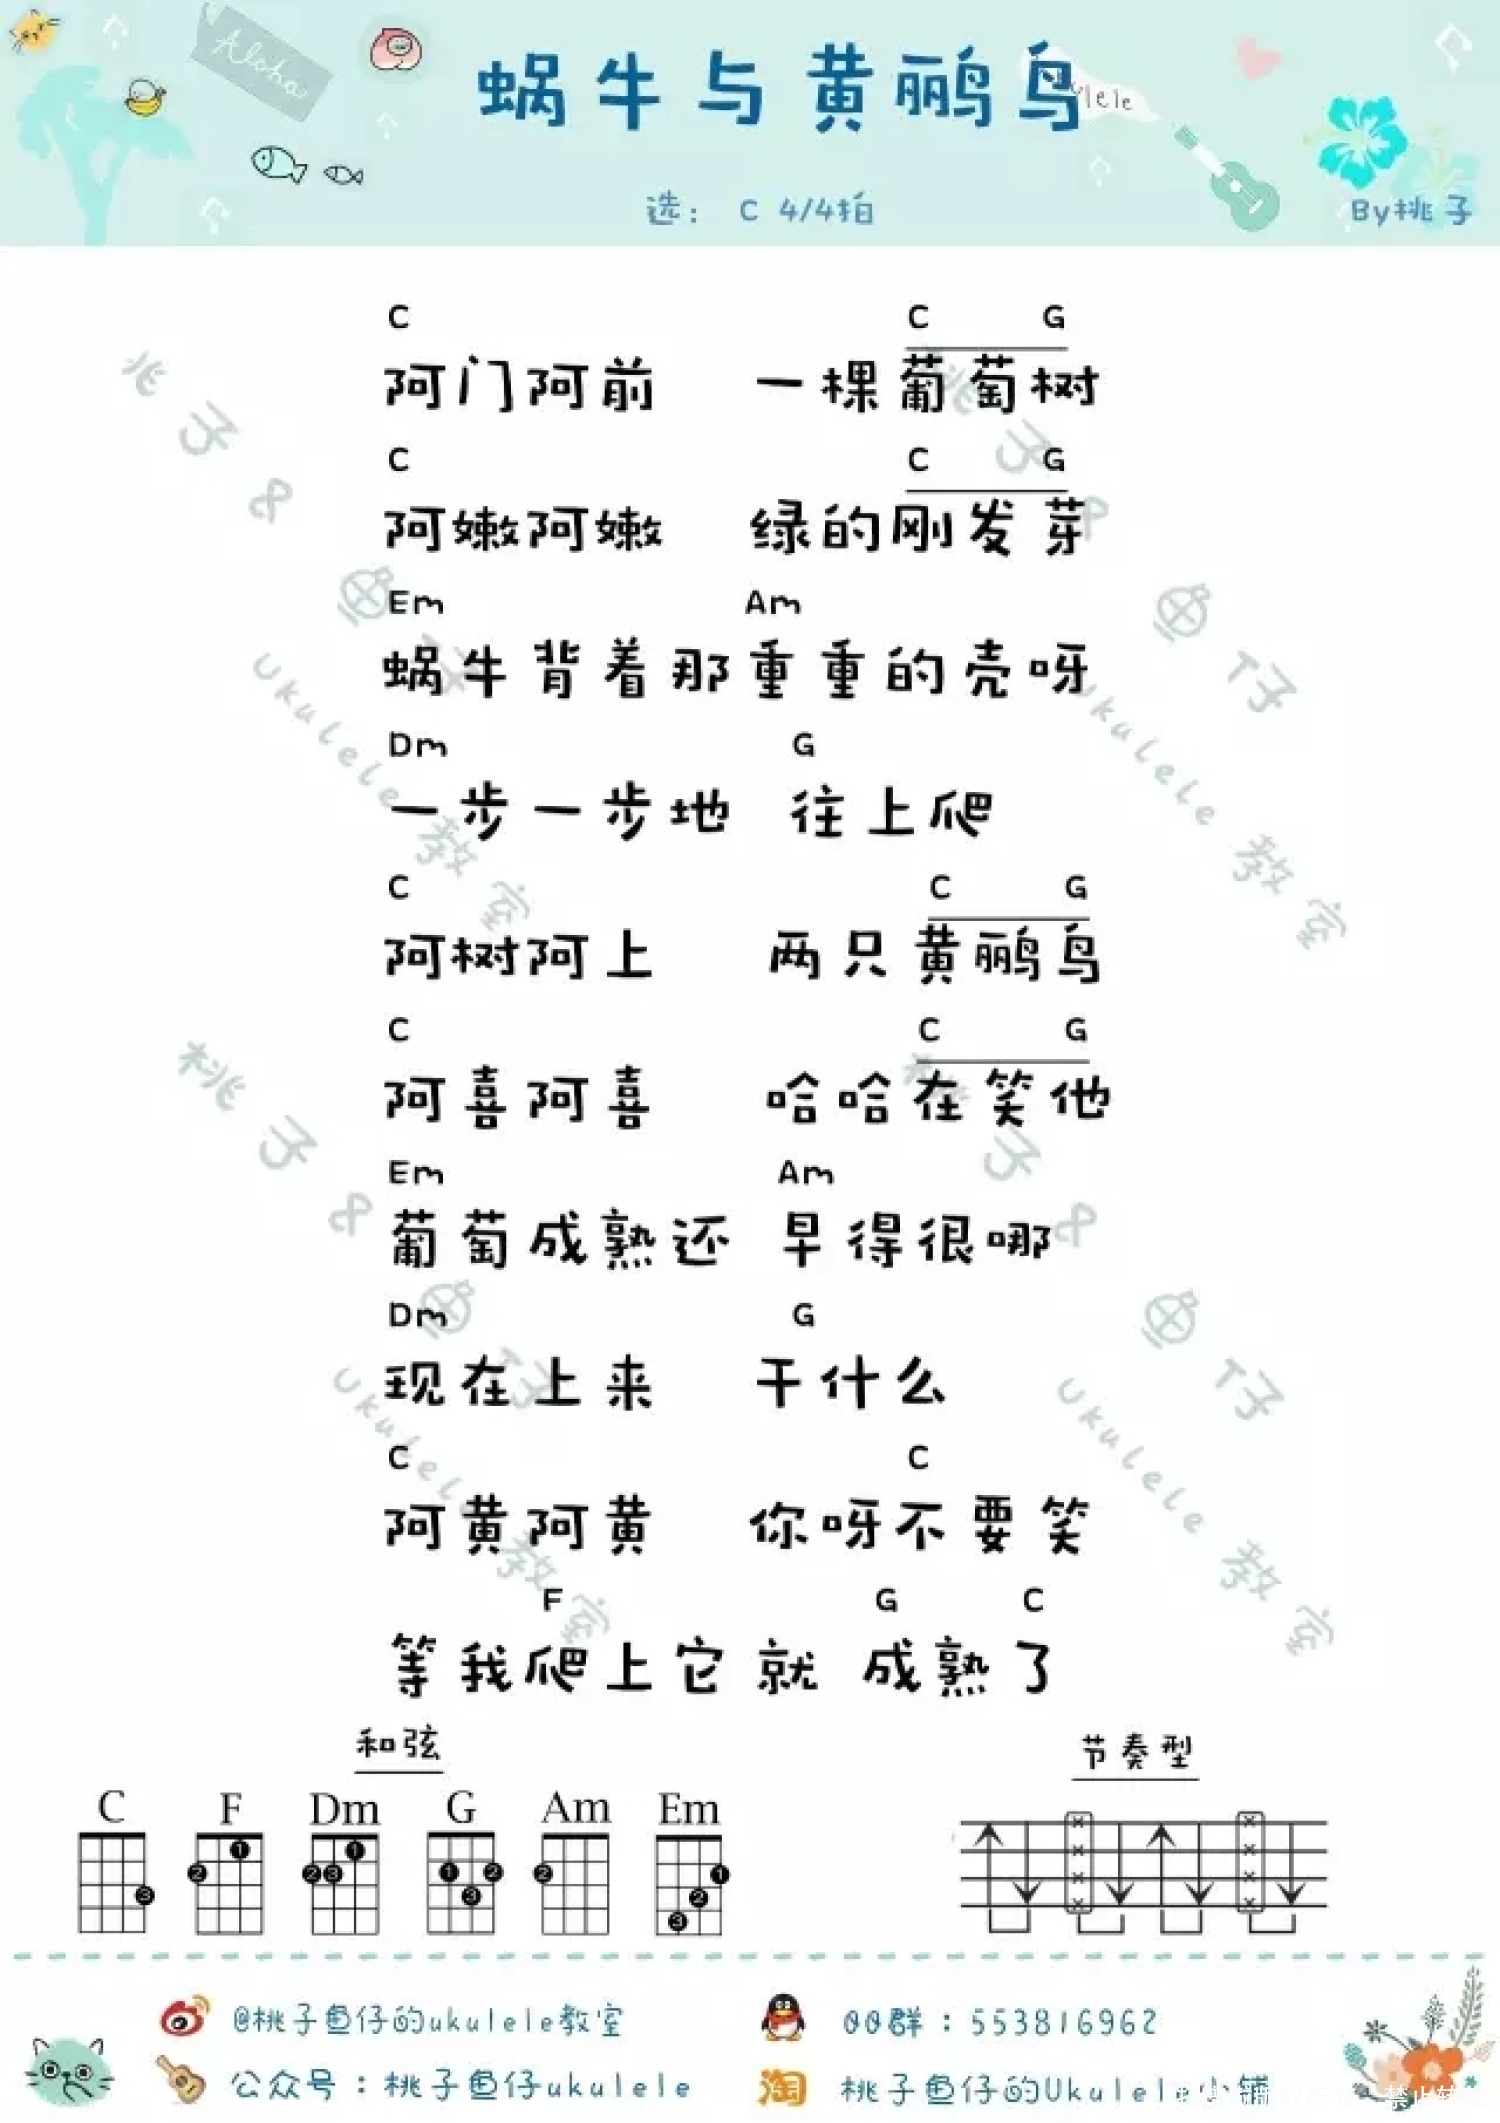 Aloha
蜗牛与黄鹂鸟
选： C 4/4拍
By桃子
C C G
阿门阿前 一棵葡萄树
C C G
阿嫩阿嫩 绿的刚发芽
Em Am
蜗牛背着那重重的壳呀
Dm G
一步一步地 往上爬
C C G
阿树阿上 两只黄鹂鸟
C C G
阿喜阿喜 哈哈在笑他
Em Am
葡萄成熟还 早得很哪
Dm G
现在上来 干什么
C C
阿黄阿黄 你呀不要笑
F G C
等我爬上它就 成熟了
和弦
节奏型
C F Dm G Am Em
@桃子鱼仔的ukulele教室
QQ群：553816962
公众号：桃子鱼仔ukulele
淘 桃子鱼仔的Ukulele小铺